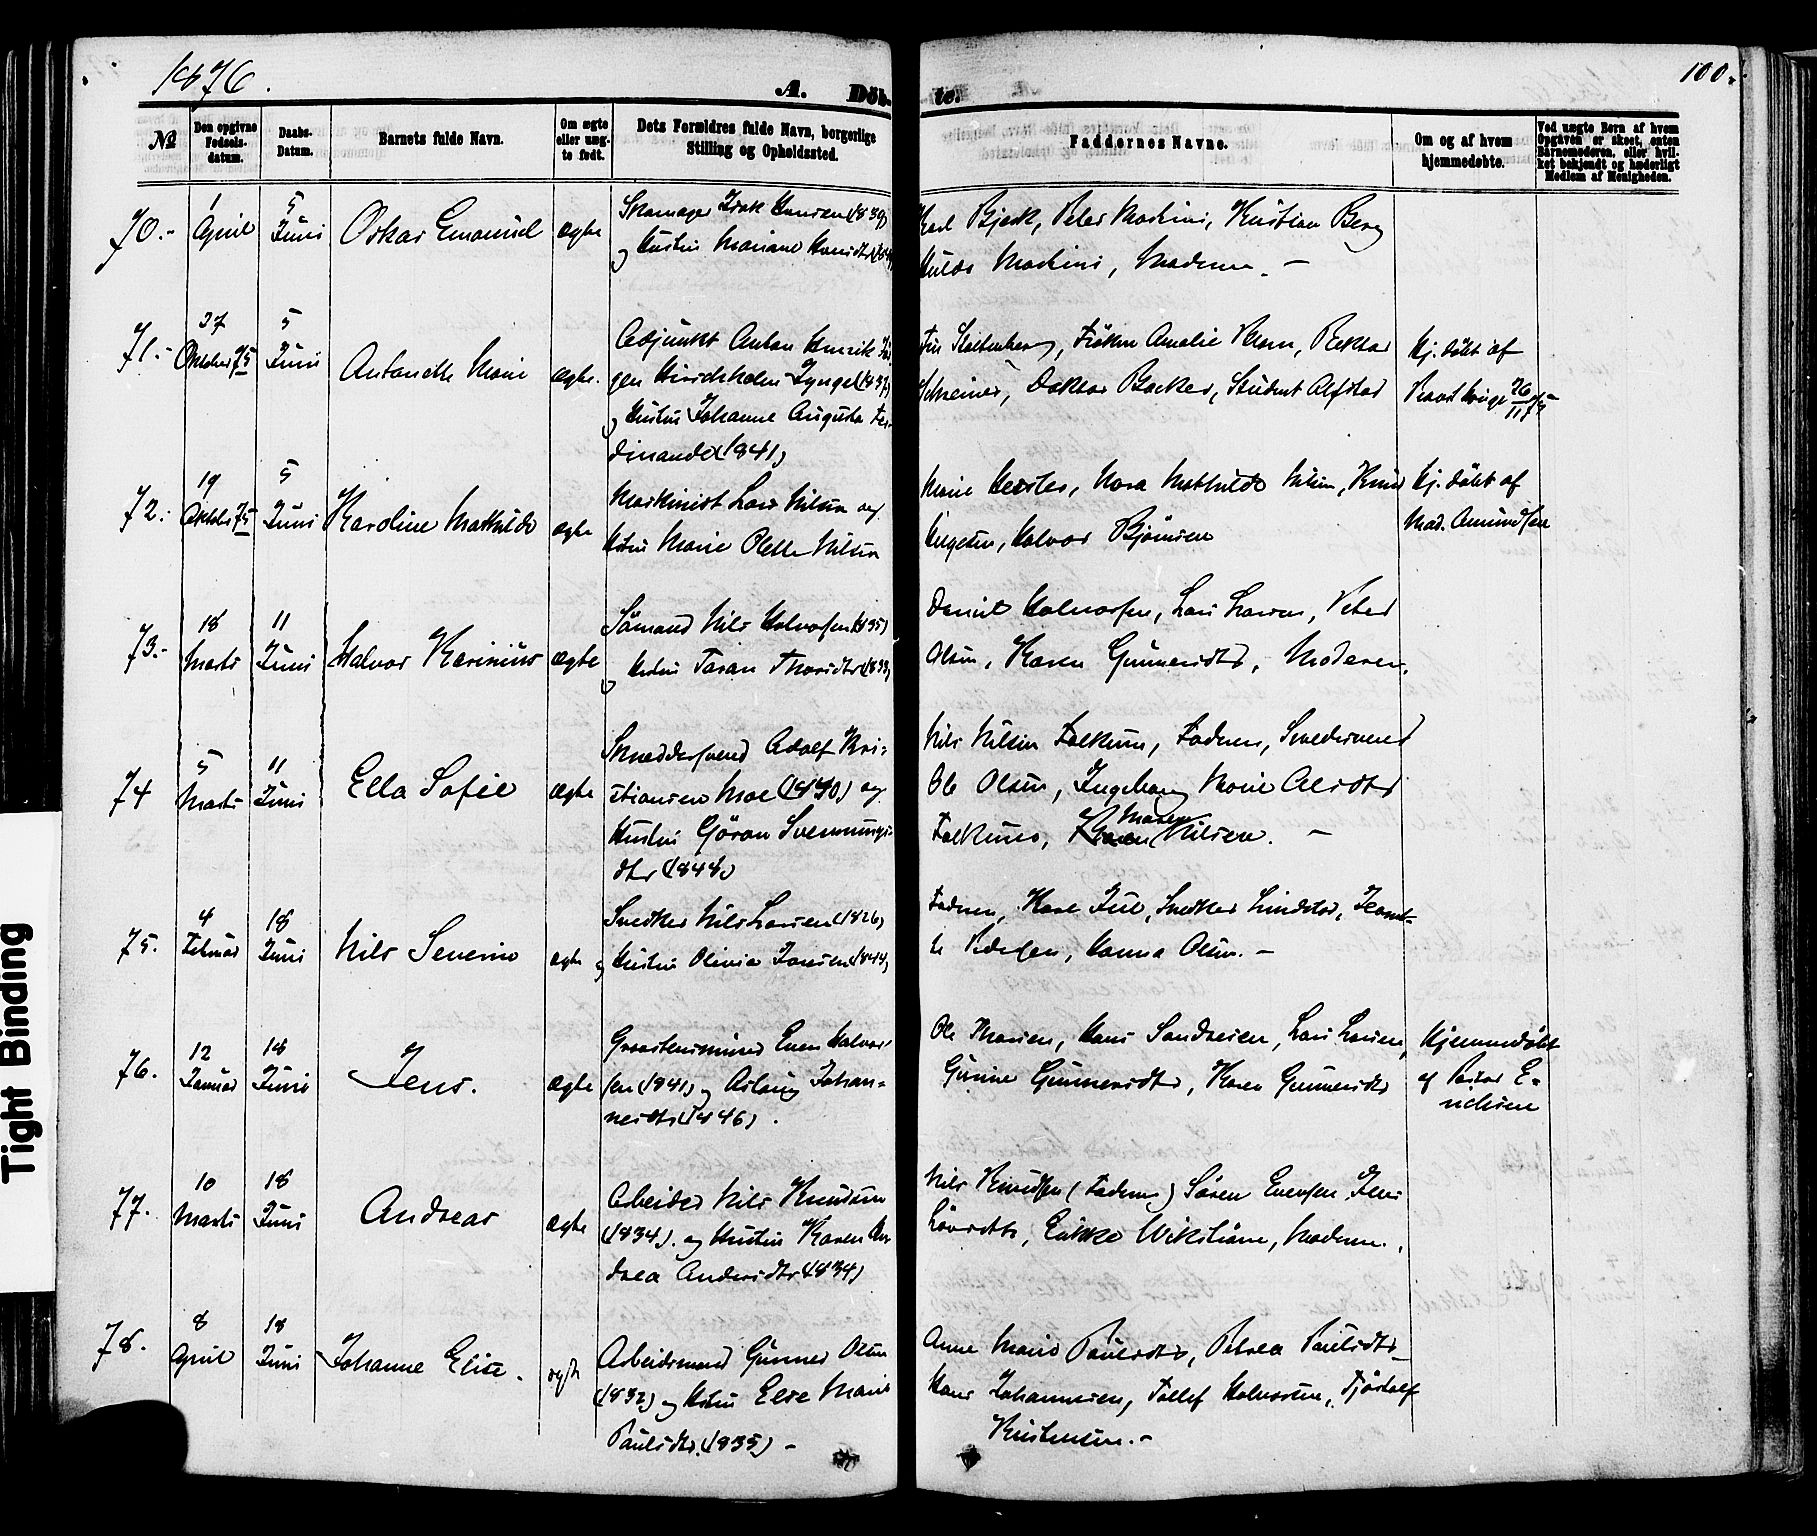 1876.
A. Döb-
te.
100.
№
Den opgivne Fødsels-datum.
Daabs-Datum.
Barnets fulde Navn.
Om ægte eller uæg-te født.
Dets Forældres fulde Navn, borgerlige Stilling og Opholdssted.
Faddernes Navne.
Om og af hvem hjemmedøbte.
Ved uægte Børn af hvem Opgaven er skeet, enten Barnemoderen, eller hvil-ket bekjendt og hæderligt Medlem af Menigheden.
70.-
1 April
5 Juni
Oskar Emanuel
ægte
Isak Hansen (1839)
og Hustru Mariane
Karl Bjerk, Peter Mathini, Kristian Berg
Hulda Mathini, Moderen. -
71.-
27 Oktober 75
5 Juni
Antonette Marie
ægte.
Adjunkt Anton Henrik Jør-
gen Lynge (1837)
og Hustru Johanne Augusta Fer-
dinande (1841)
Stoltenberg, Frøken Amalie Blom, Rektor
Schreiner, Doktor Backer, Student Alfstad
Hj. døbt af
Provst Krüge 26/11 75
72.-
19 Oktober 75
5 Juni
Karoline Mathilde
ægte
Maskinist Lars Nilsen og
Hustru Marie Olette Nilsen
Marie Kerster, Nora Mathilde Nilsen, Knud
Halvor Bjørnsen
Hj. døbt af
Mad. Amundsen
73.-
18 Marts
11 Juni
Halvor Karinius
ægte
Sömand Nils Halvorsen (1835)
og Hustru Taran Thorsdtr (1833)
Daniel Halvorsen, Lars Larsen, Peter
Olsen, Karen Gunnersdtr, Moderen.
74
5 Marts
11 Juni
Ella Sofie
ægte
Skræddersvend Adolf Kri-
stiansen Moe (1840) og
Hustru Göran Svennungs-
dtr (1844)
Nils Nilsen Falkum, Faderen, Snedkersvend
Ole Olsen, Ingeborg Marie
Falkum, Maren Nilsen. -
75.
4 Februar
18 Juni
Nils Severin
ægte
Snedker Nils Larsen (1826)
og Hustru Olivia Jansen (1844)
Faderen, Karl Jul, Snedker Lindstad, Jeanet-
te Pedersen, Hanna Olsen. -
76.
12 Januar
18 Juni
Jens.
ægte
Graastensminer Even Halvor-
sen (1841) og Aslaug Johan-
nesdtr (1846).
Ole Hansen, Hans Sandersen, Lars Larsen,
Gunne Gunnersdtr, Karen Gunnersdtr
Hjemmedøbt
af Pastor E-
richsen
77.
10 Marts
18 Juni
Andreas
ægte
Arbeider Nils Knudsen
(1834). og Hustru Karen An-
drea Andersdtr (1834)
Nils Knudsen (Faderen) Sören Evensen, Jens
Moderen.
78.
8 April
18 Juni
Johanne Elise.
ægte
Arbeidsmand Gunner Olsen
(1832) og Hustru Else Marie
Paulsdtr. (1835) -
Anne Marie Paulsdtr, Petrea Paulsdtr
Hans Johannesen, Tollef Halvorsen, Tjöstolf
Kristensen. -
Tight Binding